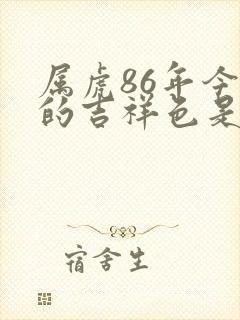 属虎86年今
的吉祥色是
宿舍生